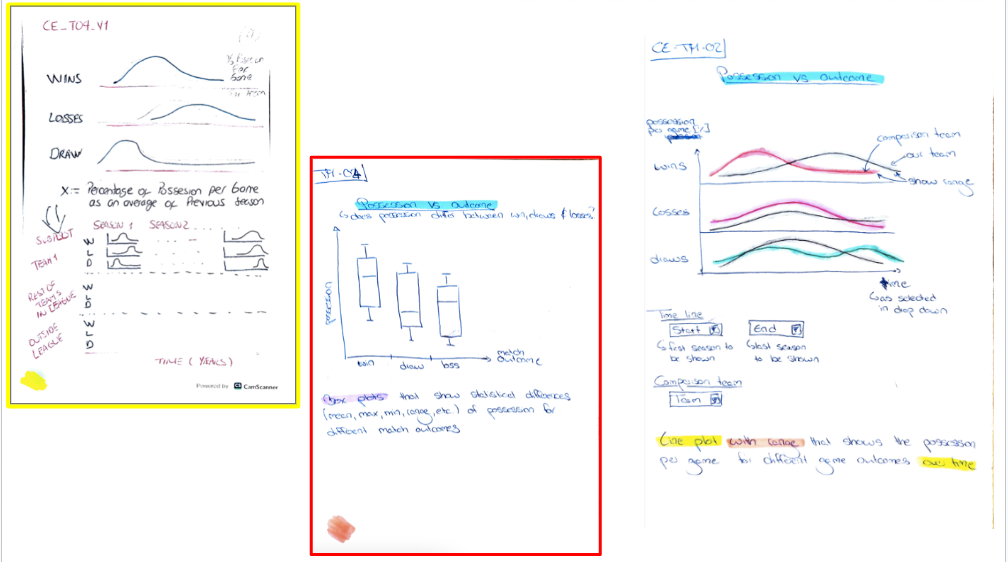 CE_T04_V1
WINS
LOSSES
DRAW
X:= Percentage of Possesion per Game
as an average of Previous season
SUBPLOT
SEASON 1 SEASON 2
TEAM 1
W
L
D
REST OF
TEAMS
IN LEAGUE
W
L
D
OUTSIDE
LEAGUE
W
L
D
TIME (YEARS)
Powered by CS CamScanner
TM-04
Possession vs Outcome
does possession differ between win, draws & losses?
possession
win draw loss
match
outcome
Box plots that show statistical differences
(mean, max, min, range, etc.) of possession for
different match outcomes
CE-TM-02
Possession vs outcome
possession
per game [%]
comparison team
our team
show range
wins
losses
draws
time
was selected
in drop down
Time line
Start
End
first season to
be shown
last season
to be shown
Comparison team
Team
Line plot with range that shows the possession
per game for different game outcomes over time